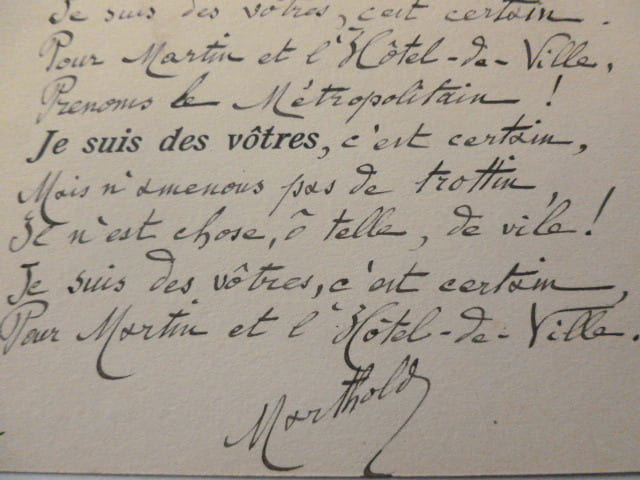 Je suis des vôtres, c'est certain.
Pour Martin et l'Hôtel-de-Ville,
Prenons le Métropolitain !
Je suis des vôtres, c'est certain,
Mais n'amenons pas de trottin,
Il n'est chose, ô telle, de vile !
Je suis des vôtres, c'est certain,
Pour Martin et l'Hôtel-de-Ville.
Marthold